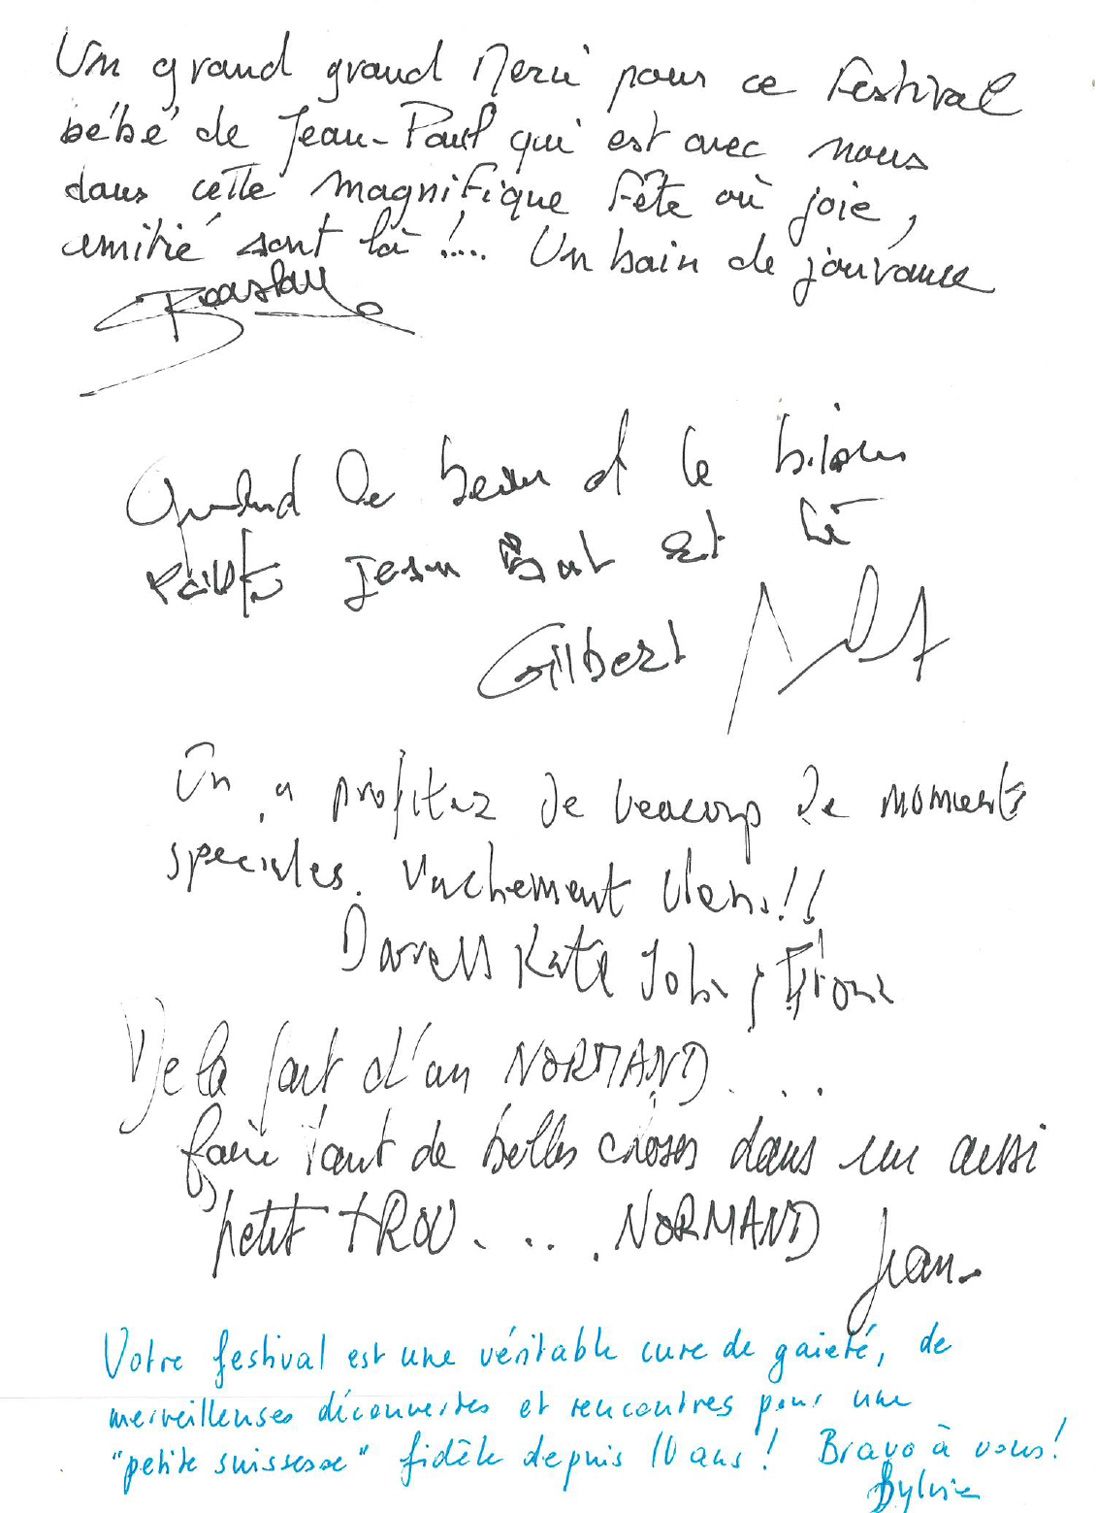 Un grand grand Merci pour ce Festival
bébé de Jean-Paul qui est avec nous
dans cette magnifique Fête où joie,
amitié sont là !.... Un bain de jouvance
Quand le beau et le bijou
Jean Paul est là
Gilbert
On a profitez de beaucoup de moments
speciales. Vachement
Darrell Kate John
De la part d'un NORMAND....
faire tant de belles choses dans un aussi
petit tROU..... NORMAND
Jean.
Votre festival est une véritable cure de gaieté, de
merveilleuses découvertes et rencontres pour une
"petite suissesse" fidèle depuis 10 ans! Bravo à vous!
Sylvie